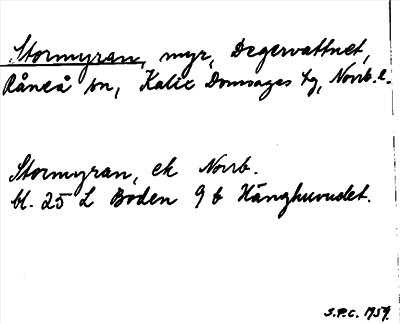 Stormyran, myr, Degervattnet,
Råneå sn, Kalix Domsagas tg, Norrb. l.
Stormyran, ek Norrb.
bl. 25 L Boden 9 b Hänghuvudet.
S.P.C. 1959.